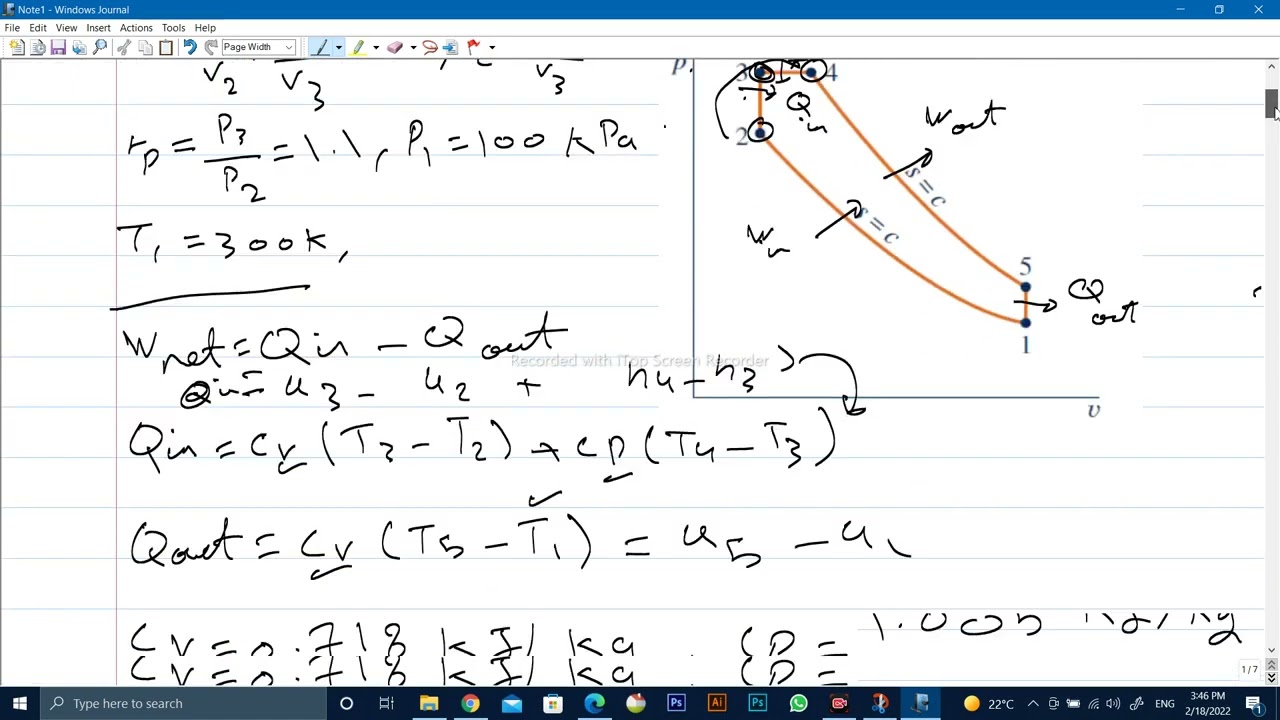 Note1 - Windows Journal
File Edit View Insert Actions Tools Help
Page Width
V2 V3 V3
rp = P3/P2 = 1.1, P1 = 100 kPa
T1 = 300K,
Wnet = Qin - Qout
Qin = u3 - u2 + h4 - h3
Qin = Cv (T3 - T2) + CP (T4 - T3)
Qout = Cv (T5 - T1) = u5 - u1
Cv = 0.718 kJ/kg, CP = 1.005 kJ/kg
Cv = 0.718 kJ/kg, CP =
P
3
4
Qin
2
Wout
s = c
Win
s = c
5
Qout
1
v
Recorded with iTop Screen Recorder
1/7
Type here to search
Ps
Ai
Ps
22°C
ENG
3:46 PM
2/18/2022